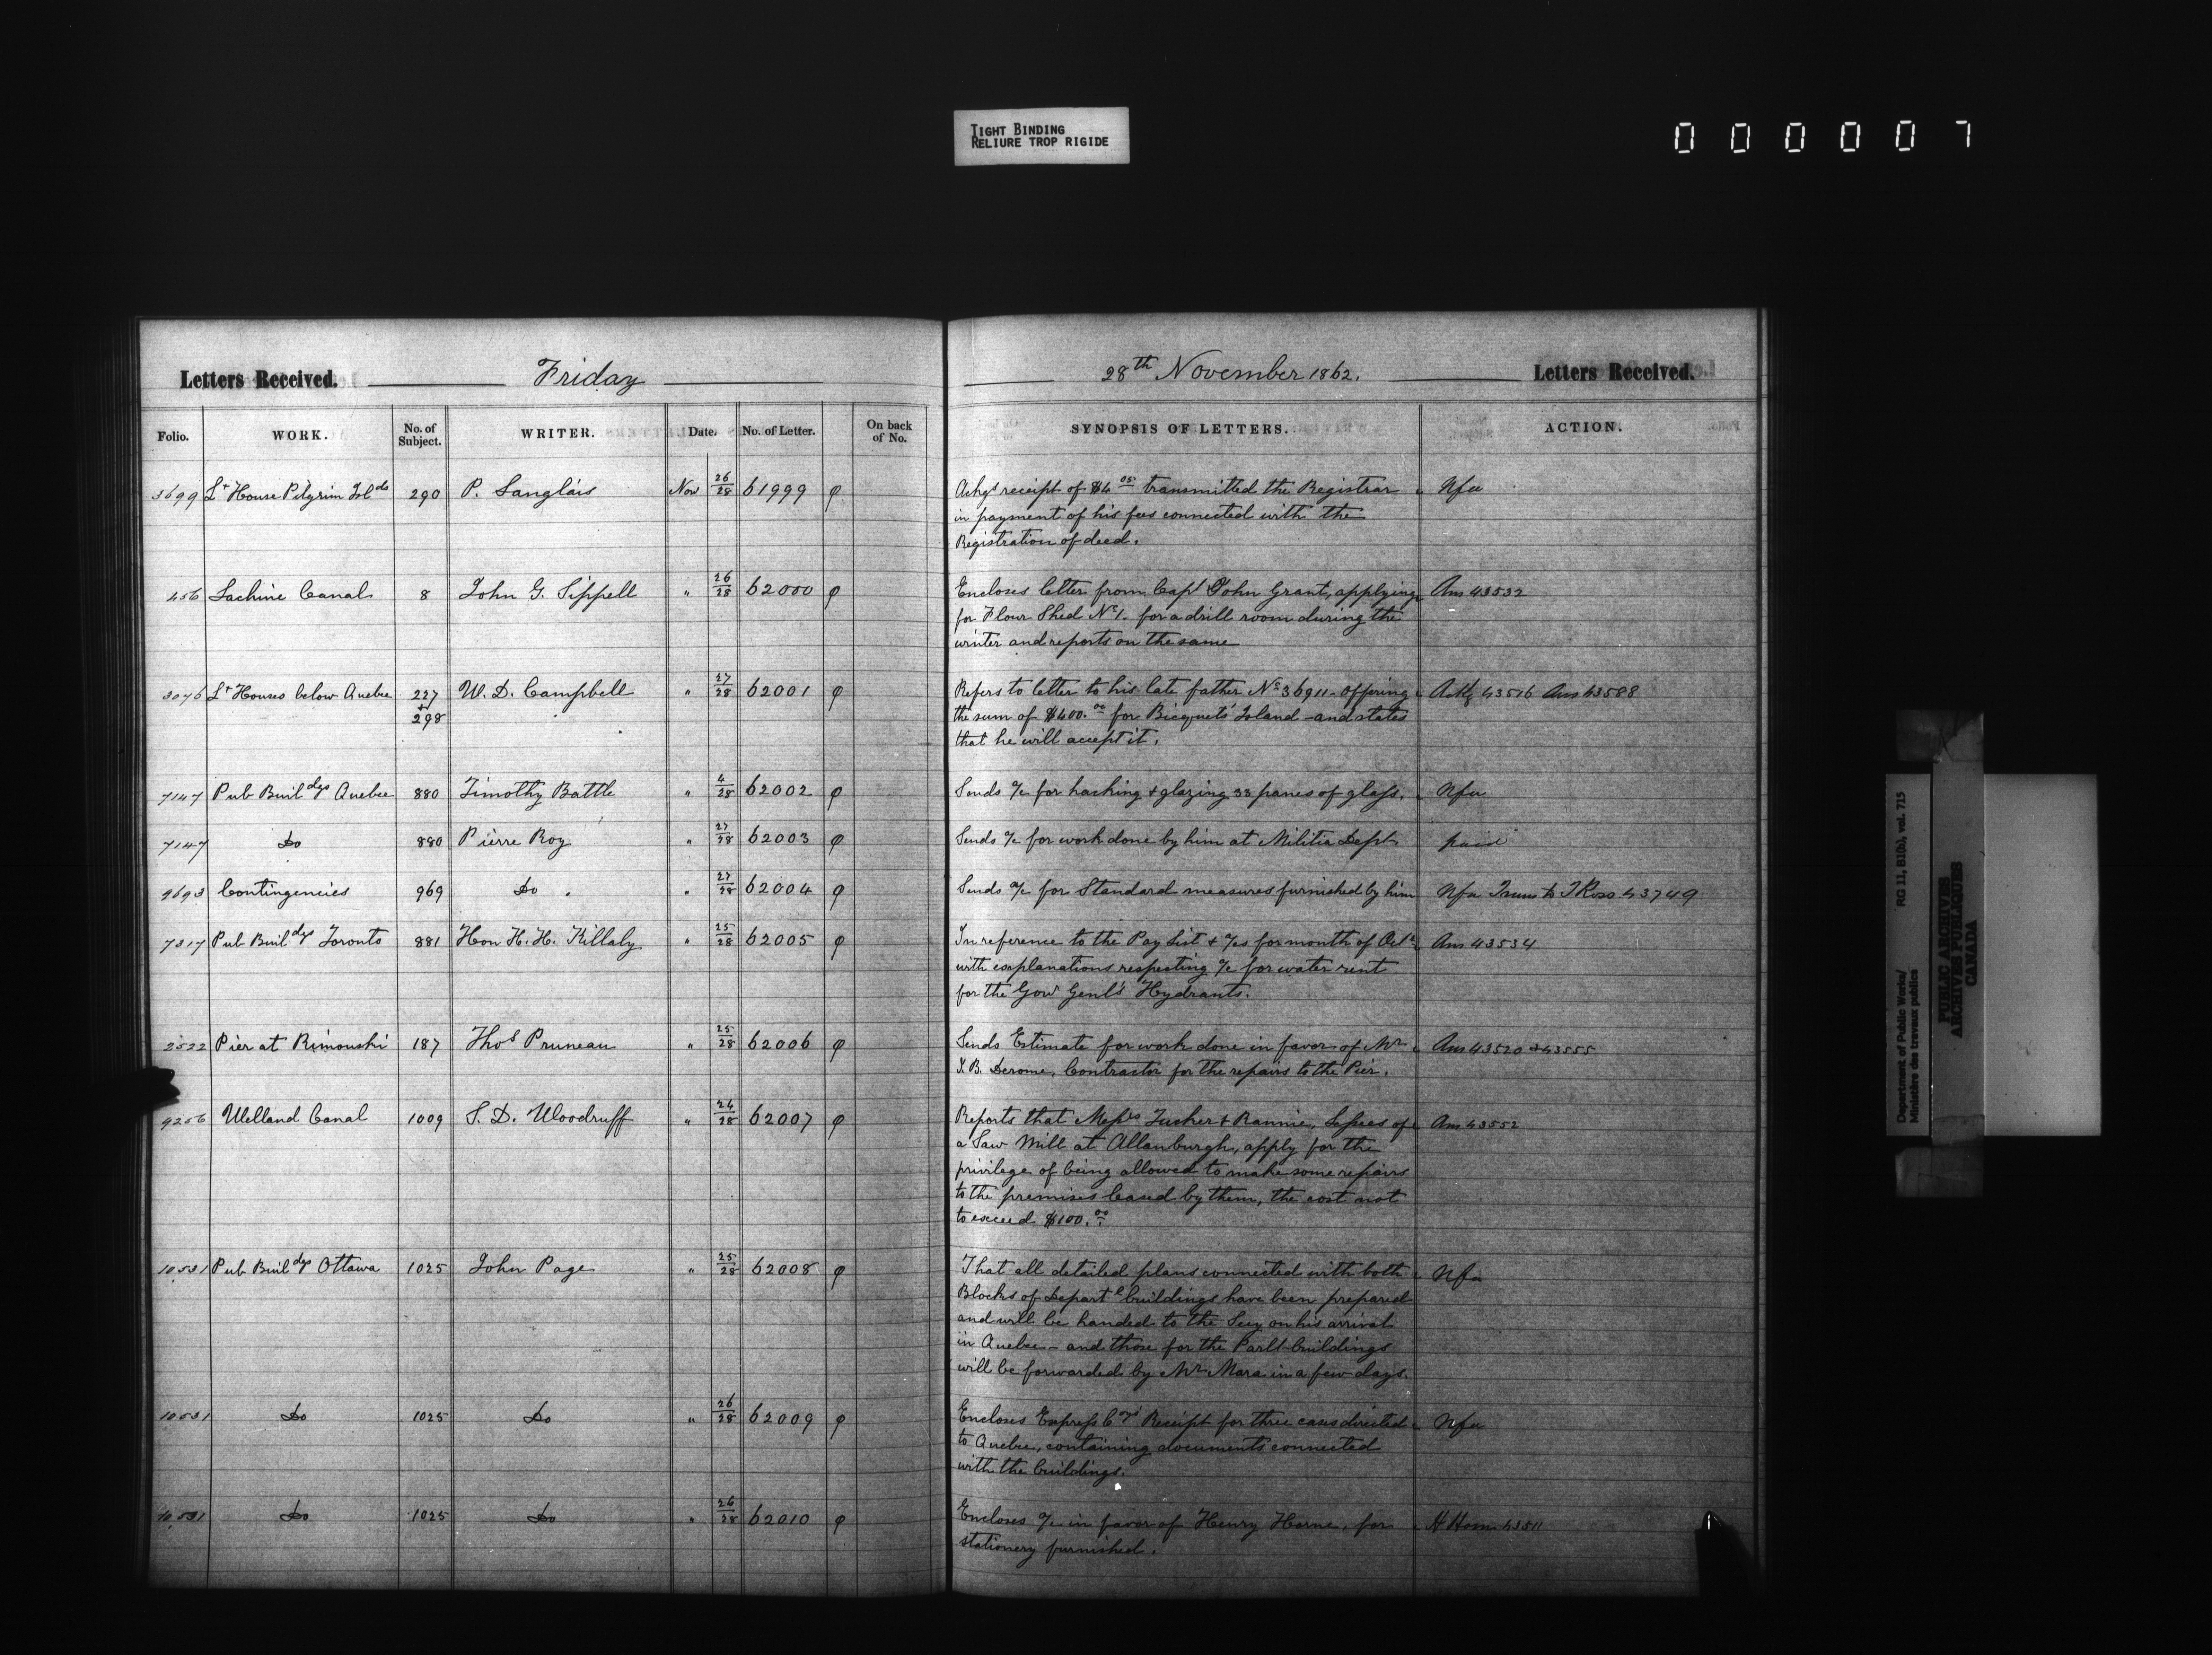 TIGHT BINDING
RELIURE TROP RIGIDE
000007
Letters Received. Friday
28th November 1862. Letters Received.
Folio. WORK. No. of Subject. WRITER. Date. No. of Letter. On back of No.
SYNOPSIS OF LETTERS. ACTION.
3699 Lt House Pilgrim Islds 290 P. Langlais Nov 26/28 61999 φ
Ackgs receipt of $4 05 transmitted the Registrar Nfa
in payment of his fees connected with the
Registration of deed.
456 Lachine Canal 8 John G. Sippell " 26/28 62000 φ
Encloses letter from Capt John Grant, applying Ans 43532
for Flour Shed No 1. for a drill room during the
winter and reports on the same
3076 Lt Houses below Quebec 227 + 298 W. D. Campbell " 27/28 62001 φ
Refers to letter to his late father No 36911 - offering Ackg 43516 Ans 43588
the sum of $400.00 for Bicquets Island - and states
that he will accept it.
7147 Pub Buildgs Quebec 880 Timothy Battle " 4/28 62002 φ
Sends a/c for hacking & glazing 33 panes of glass. Nfa
7147 Do 880 Pierre Roy " 27/28 62003 φ
Sends a/c for work done by him at Militia Dept paid
9693 Contingencies 969 Do " 27/28 62004 φ
Sends a/c for Standard measures furnished by him Nfa Trans to T Ross 43749
7317 Pub Buildgs Toronto 881 Hon H. H. Killaly " 25/28 62005 φ
In reference to the Pay List & a/cs for month of Octr Ans 43534
with explanations respecting a/c for water rent
for the Govr Genl's Hydrants.
2522 Pier at Rimouski 187 Thos Pruneau " 25/28 62006 φ
Sends Estimate for work done in favor of Mr Ans 43520 & 43555
J. B. Derome, Contractor for the repairs to the Pier.
9256 Welland Canal 1009 S. D. Woodruff " 24/28 62007 φ
Reports that Messrs Tucker & Rannie, Lessees of Ans 43552
a Saw Mill at Allanburgh, apply for the
privilege of being allowed to make some repairs
to the premises leased by them, the cost not
to exceed $100.00
10531 Pub Buildgs Ottawa 1025 John Page " 25/28 62008 φ
That all detailed plans connected with both Nfa
Blocks of Departl buildings have been prepared
and will be handed to the Secy on his arrival
in Quebec - and those for the Parlt buildings
will be forwarded by Mr Mara in a few days.
10531 Do 1025 Do " 26/28 62009 φ
Encloses Express Coy's Receipt for three cases directed Nfa
to Quebec, containing documents connected
with the buildings.
10531 Do 1025 Do " 26/28 62010 φ
Encloses a/c in favor of Henry Horne, for H Horne 43511
stationery furnished.
Department of Public Works/ RG 11, B1(b), vol. 715
Ministère des travaux publics
PUBLIC ARCHIVES
ARCHIVES PUBLIQUES
CANADA